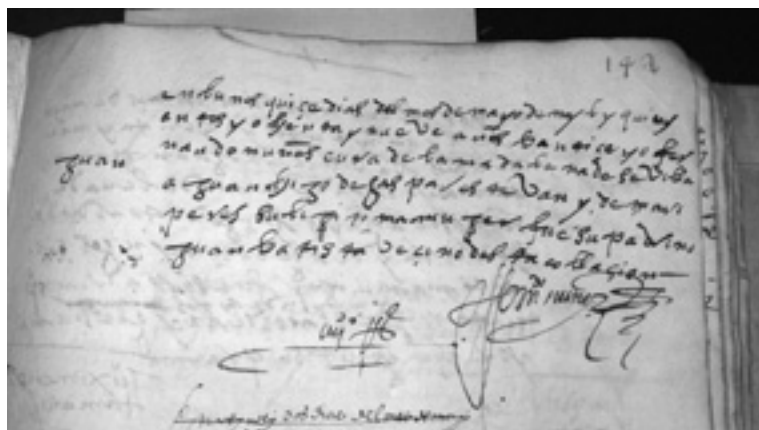 148
en lunes quice dias del mes de mayo de myl y quini
entos y ochenta y nueve años bautice yo fer
nando nuñes cura de la madalena de sevilla
Juan
a Juan hijo de gaspar estevan y de mari
peres su legitima muger fue su padrino
Juan batista vecino desta collacion
fer^do nuñes